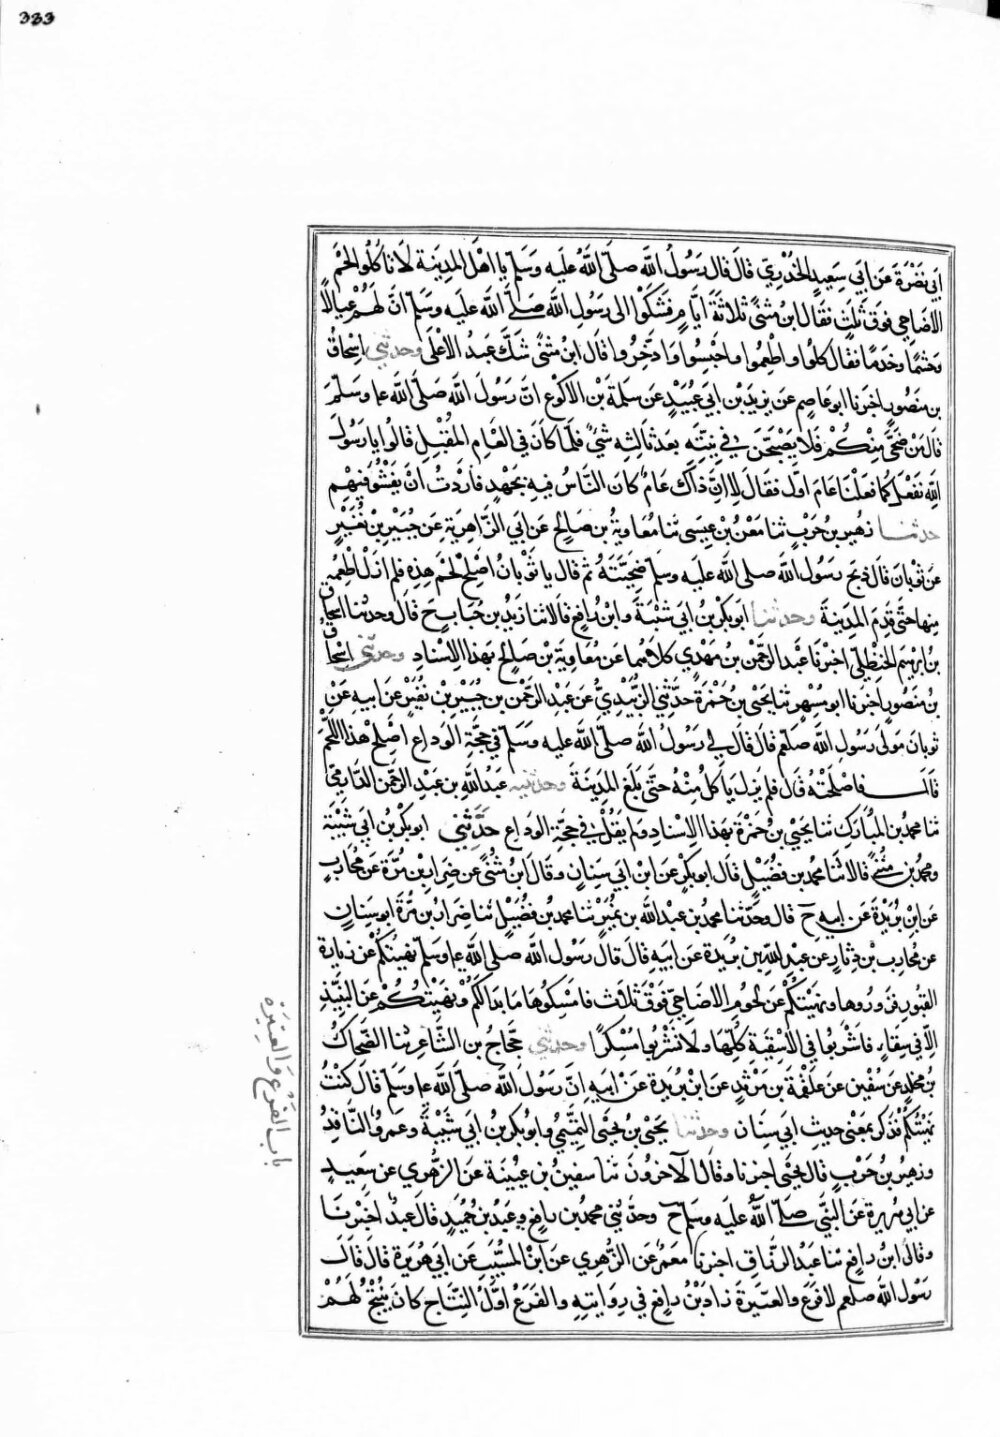 333
ابي نضرة عن ابي سعيد الخدري قال قال رسول الله صلى الله عليه وسلم يا اهل المدينة لا تاكلوا لحم
الاضاحي فوق ثلث فقال ابن مثنى ثلاثة ايام فشكوا الى رسول الله صلى الله عليه وسلم ان لهم عيالا
وحشما وخدما فقال كلوا واطعموا واحبسوا وادخروا قال ابن مثنى شك عبد الاعلى وحدثني اسحاق
بن منصور اخبرنا ابو عاصم عن يزيد بن ابي عبيد عن سلمة بن الاكوع ان رسول الله صلى الله عليه وسلم
قال من ضحى منكم فلا يصبحن في بيته بعد ثالثه شئ فلما كان في العام المقبل قالوا يا رسول
الله نفعل كما فعلنا عام اول فقال لا ان ذاك عام كان الناس فيه بجهد فاردت ان يفشو فيهم
حدثنا زهير بن حرب ثنا معن بن عيسى ثنا معاوية بن صالح عن ابي الزاهرية عن جبير بن نفير
عن ثوبان قال ذبح رسول الله صلى الله عليه وسلم ضحيته ثم قال يا ثوبان اصلح لحم هذه فلم ازل اطعمه
منها حتى قدم المدينة وحدثنا ابو بكر بن ابي شيبة وابن رافع قالا ثنا زيد بن حباب ح قال وحدثنا اسحاق
بن ابرهيم الحنظلي اخبرنا عبد الرحمن بن مهدي كلاهما عن معاوية بن صالح بهذا الاسناد وحدثني اسحاق
بن منصور اخبرنا ابو مسهر ثنا يحيى بن حمزة حدثني الزبيدي عن عبد الرحمن بن جبير بن نفير عن ابيه عن
ثوبان مولى رسول الله صلعم قال قال لي رسول الله صلى الله عليه وسلم في حجة الوداع اصلح هذا اللحم
قال فاصلحته قال فلم يزل ياكل منه حتى بلغ المدينة وحدثنيه عبد الله بن عبد الرحمن الدارمي
ثنا محمد بن المبارك ثنا يحيى بن حمزة بهذا الاسناد ولم يقل في حجة الوداع حدثني ابو بكر بن ابي شيبة
ومحمد بن مثنى قالا ثنا محمد بن فضيل قال ابو بكر عن ابن ابي سنان وقال ابن مثنى عن ضرار بن مرة عن محارب
عن ابن بريدة عن ابيه ح قال وحدثنا محمد بن عبد الله بن نمير ثنا محمد بن فضيل ثنا ضرار بن مرة ابو سنان
عن محارب بن دثار عن عبد الله بن بريدة عن ابيه قال قال رسول الله صلى الله عليه وسلم نهيتكم عن زيارة
القبور فزوروها ونهيتكم عن لحوم الاضاحي فوق ثلاث فامسكوها ما بدا لكم ونهيتكم عن النبيذ
الا في سقاء فاشربوا في الاسقية كلها ولا تشربوا مسكرا وحدثني حجاج بن الشاعر ثنا الضحاك
بن مخلد عن سفين عن علقمة بن مرثد عن ابن بريدة عن ابيه ان رسول الله صلى الله عليه وسلم قال كنت
نهيتكم فذكر بمعنى حديث ابي سنان وحدثنا يحيى بن يحيى التميمي وابو بكر بن ابي شيبة وعمرو الناقد
وزهير بن حرب قال يحيى اخبرنا وقال الآخرون ثنا سفين بن عيينة عن الزهري عن سعيد
عن ابي هريرة عن النبي صلى الله عليه وسلم ح وحدثني محمد بن رافع وعبد بن حميد قال عبد اخبرنا
وقال ابن رافع ثنا عبد الرزاق اخبرنا معمر عن الزهري عن ابن المسيب عن ابي هريرة قال قال
رسول الله صلعم لا فرع والعتيرة زاد بن رافع في روايته والفرع اول النتاج كان ينتج لهم
باب الفرع والعتيرة